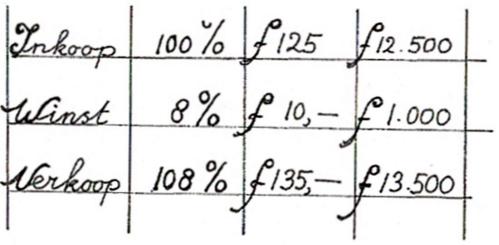 Inkoop 100% ƒ125 ƒ12.500
Winst 8% ƒ 10,— ƒ1.000
Verkoop 108% ƒ135,— ƒ13.500